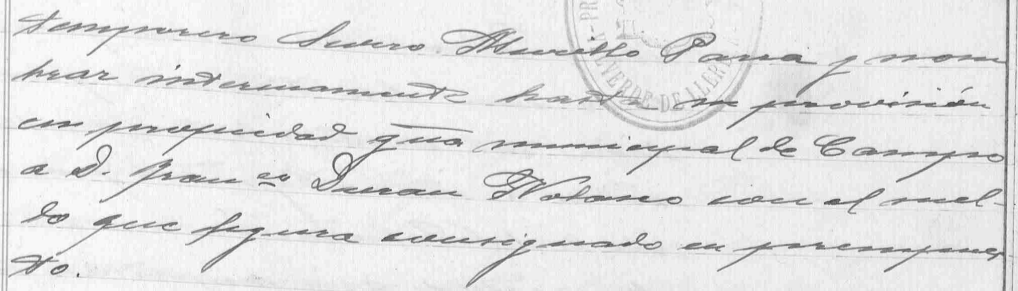 temporero Severo Murillo Parra y nom
brar interinamente hasta su provisión
en propiedad gña municipal de Campo
a D. Franco Duran Notario con el suel-
do que figura consignado en presupues
to.
VERDE DE LLERENA